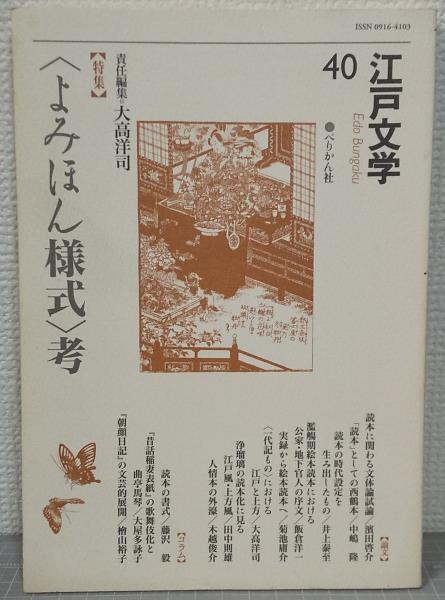 ISSN 0916-4103
江戸文学
Edo Bungaku
40
●ぺりかん社
責任編集=大高洋司
【特集】
〈よみほん様式〉考
【論文】
読本に関わる文体論試論/濱田啓介
「読本」としての西鶴本/中嶋 隆
読本の時代設定を
生み出したもの/井上泰至
濫觴期絵本読本における
公家・地下官人の序文/飯倉洋一
実録から絵本読本へ/菊池庸介
〈一代記もの〉における
江戸と上方/大高洋司
浄瑠璃の読本化に見る
江戸風・上方風/田中則雄
人情本の外濠/木越俊介
【コラム】
読本の書式/藤沢 毅
『昔話稲妻表紙』の歌舞伎化と
曲亭馬琴/大屋多詠子
『朝顔日記』の文芸的展開/檜山裕子